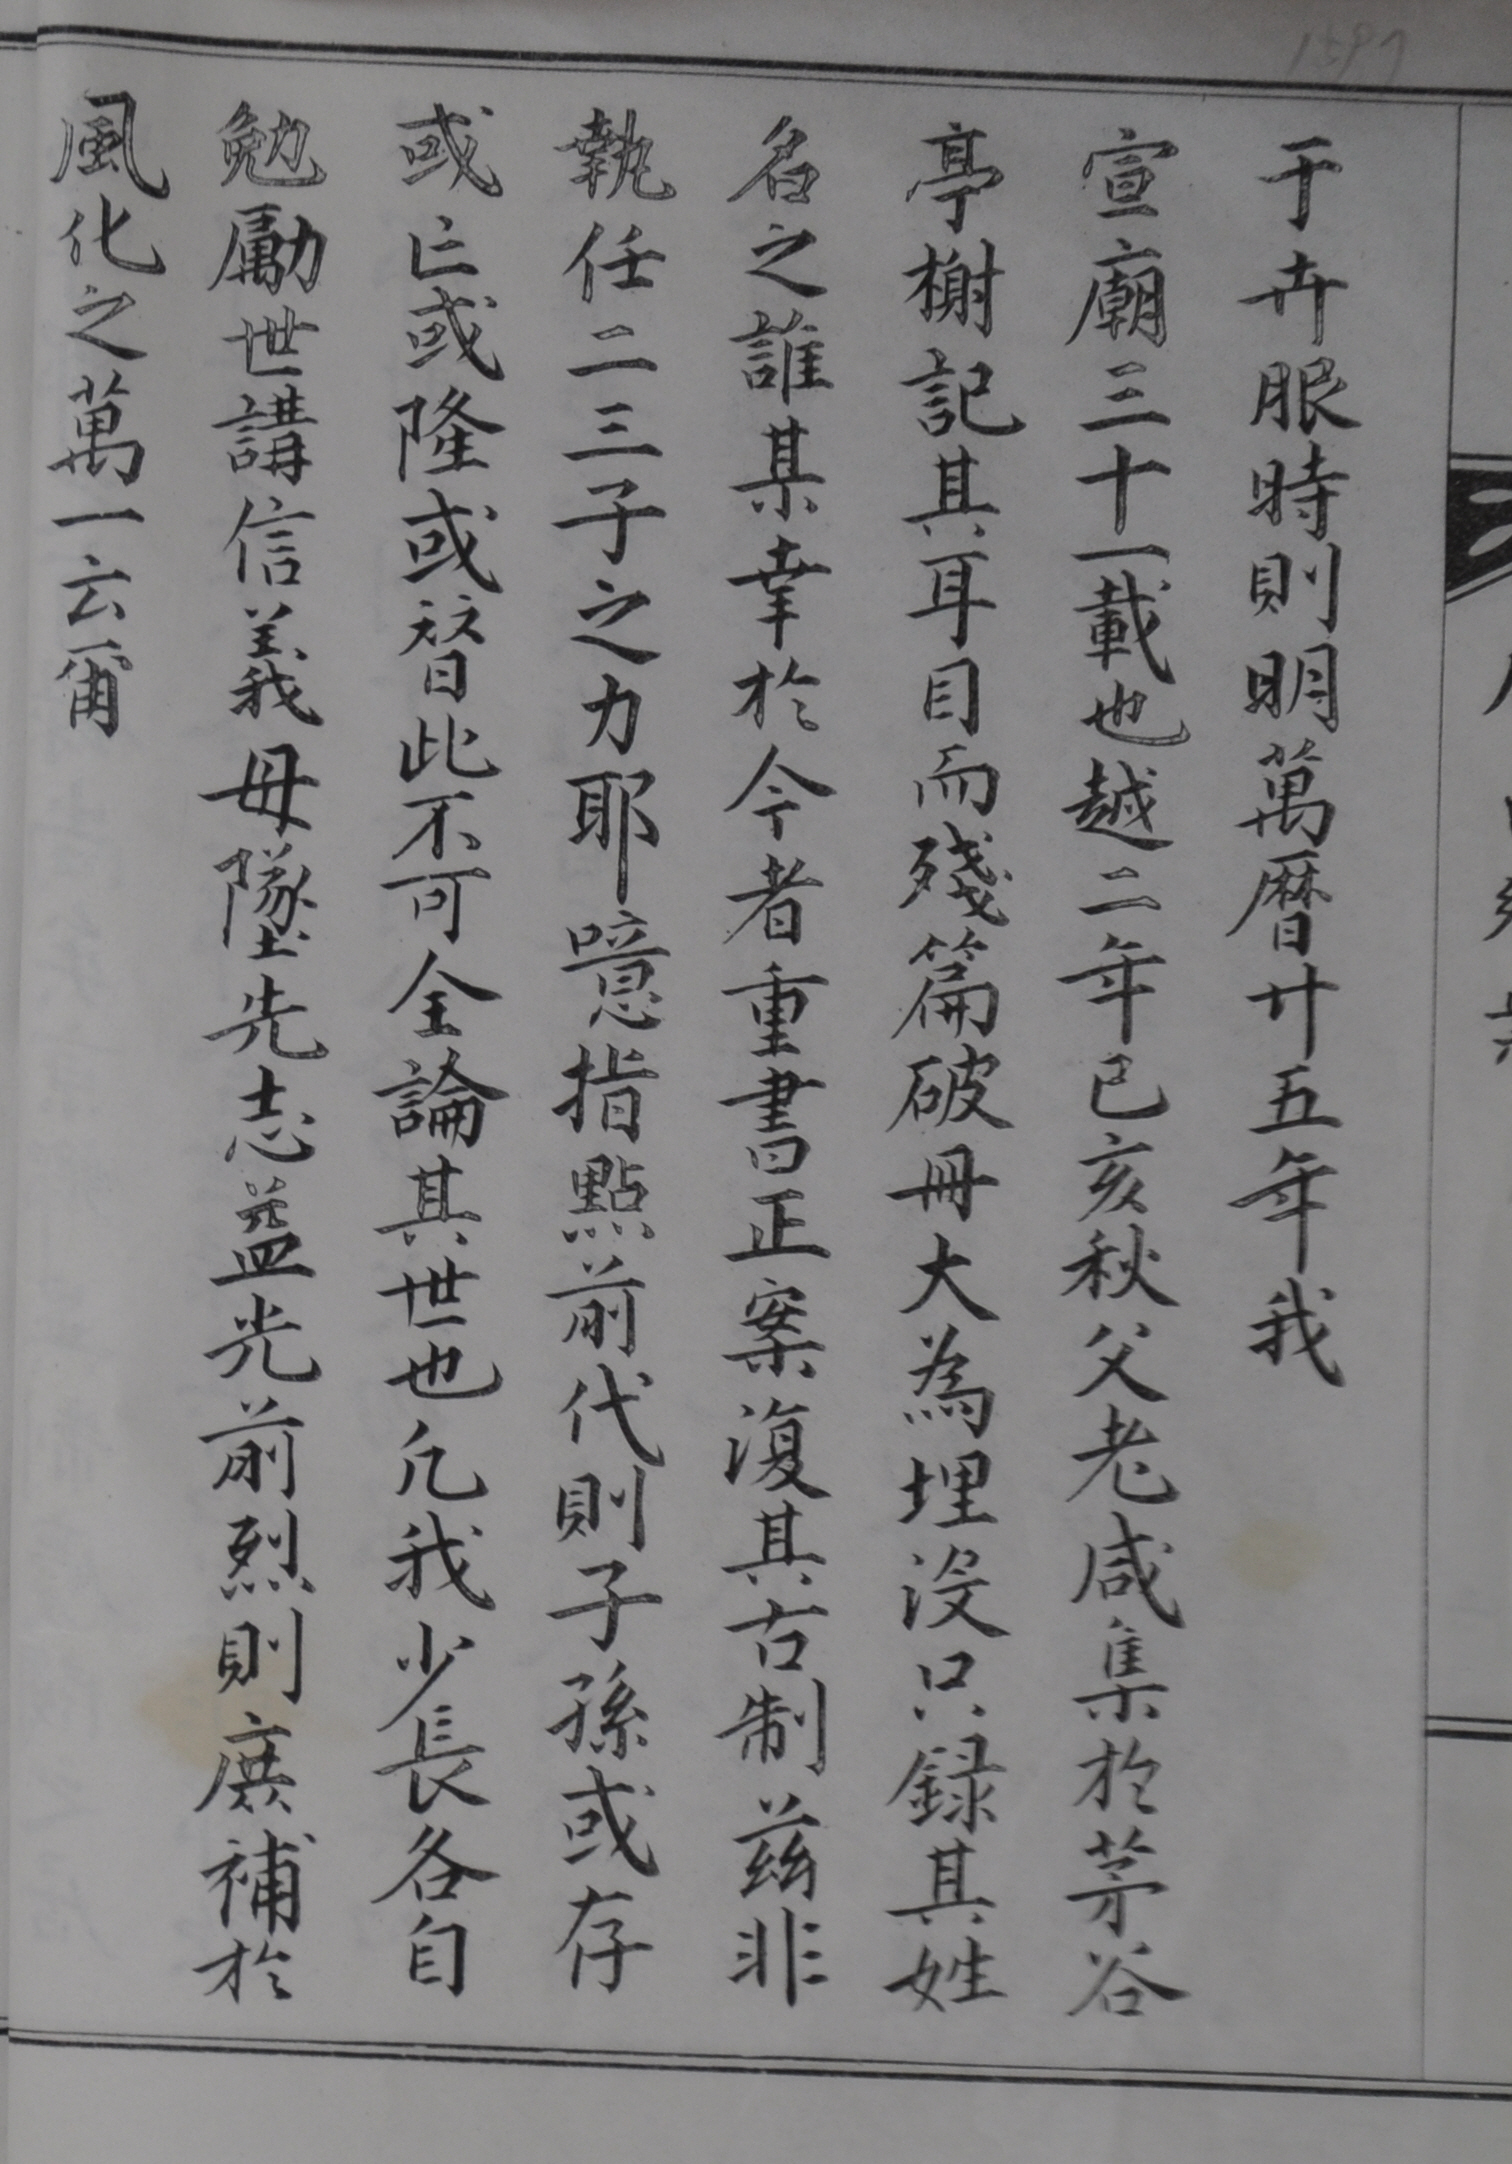 1597
于卉服時則明萬曆廿五年我
宣廟三十一載也越二年己亥秋父老咸集於茅谷
亭榭記其耳目而殘篇破冊大為埋沒只録其姓
名之誰某幸於今者重書正案復其古制茲非
執任二三子之力耶噫指點前代則子孫或存
或亡或隆或替此不可全論其世也凡我少長各自
勉勵世講信義毋墜先志益光前烈則庶補於
風化之萬一云爾